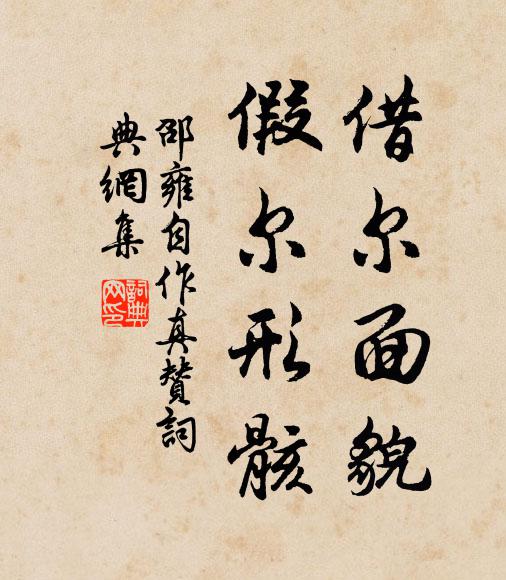 借尔面貌
假尔形骸
邵雍自作真赞詞
典網集
詞典网印